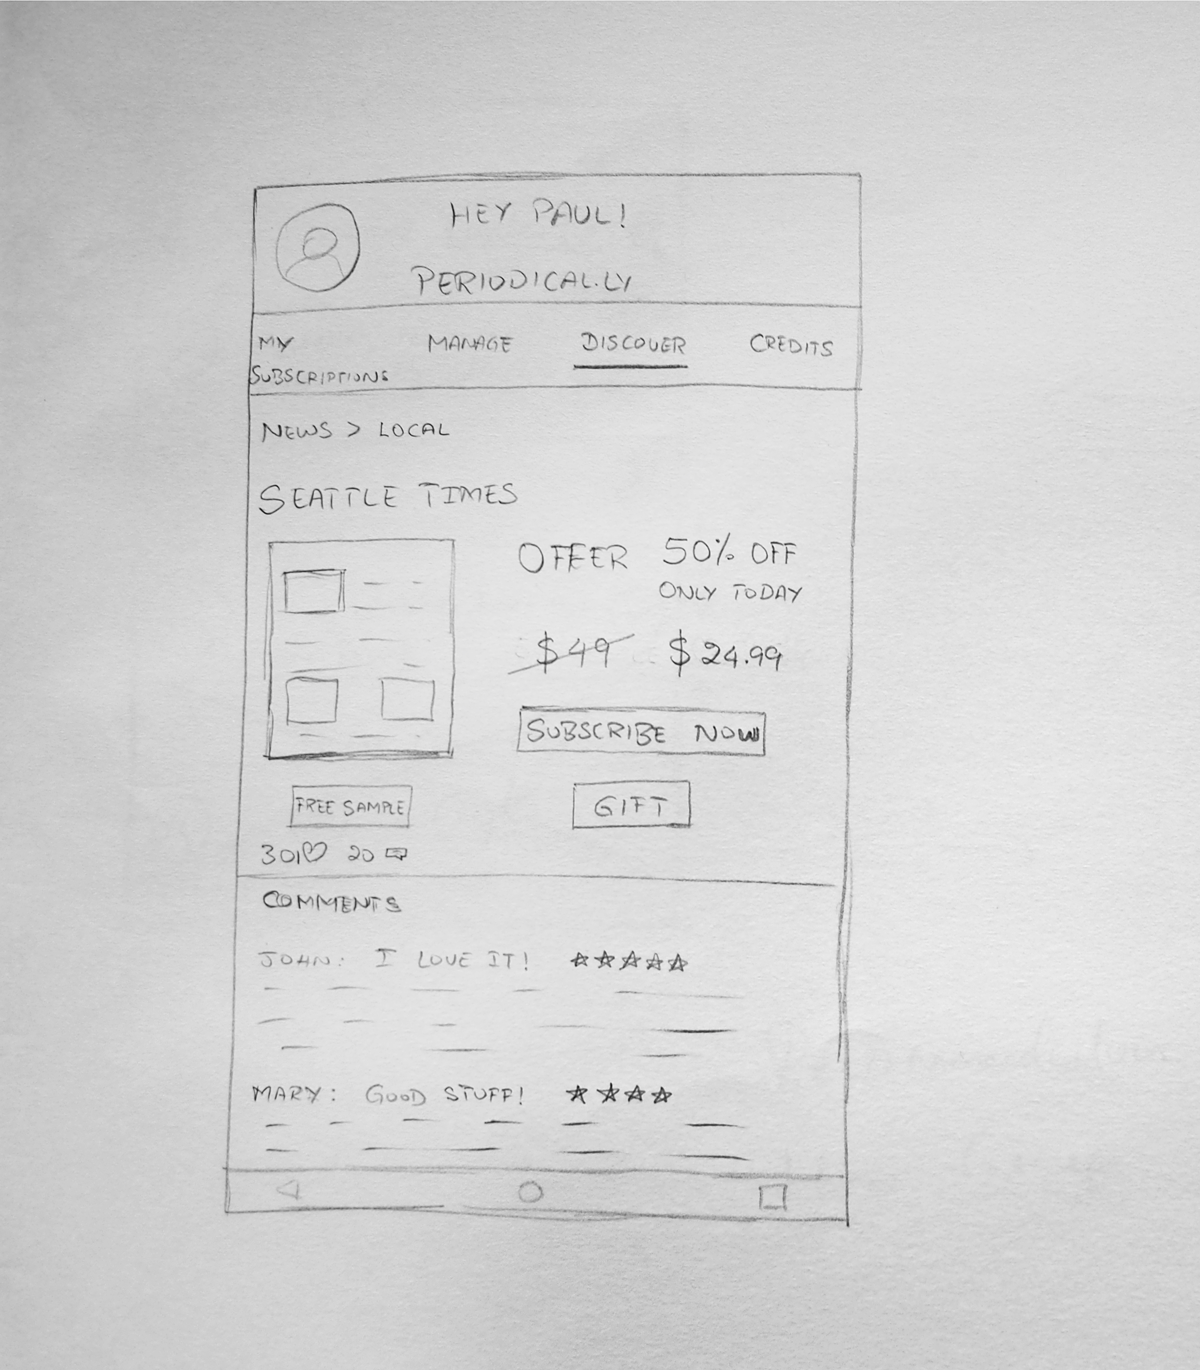 HEY PAUL!
PERIODICAL.LY
MY SUBSCRIPTIONS
MANAGE
DISCOVER
CREDITS
NEWS > LOCAL
SEATTLE TIMES
OFFER 50% OFF
ONLY TODAY
$49 $24.99
SUBSCRIBE NOW
FREE SAMPLE
GIFT
301♡ 20
COMMENTS
JOHN: I LOVE IT! ☆☆☆☆☆
MARY: GOOD STUFF! ☆☆☆☆